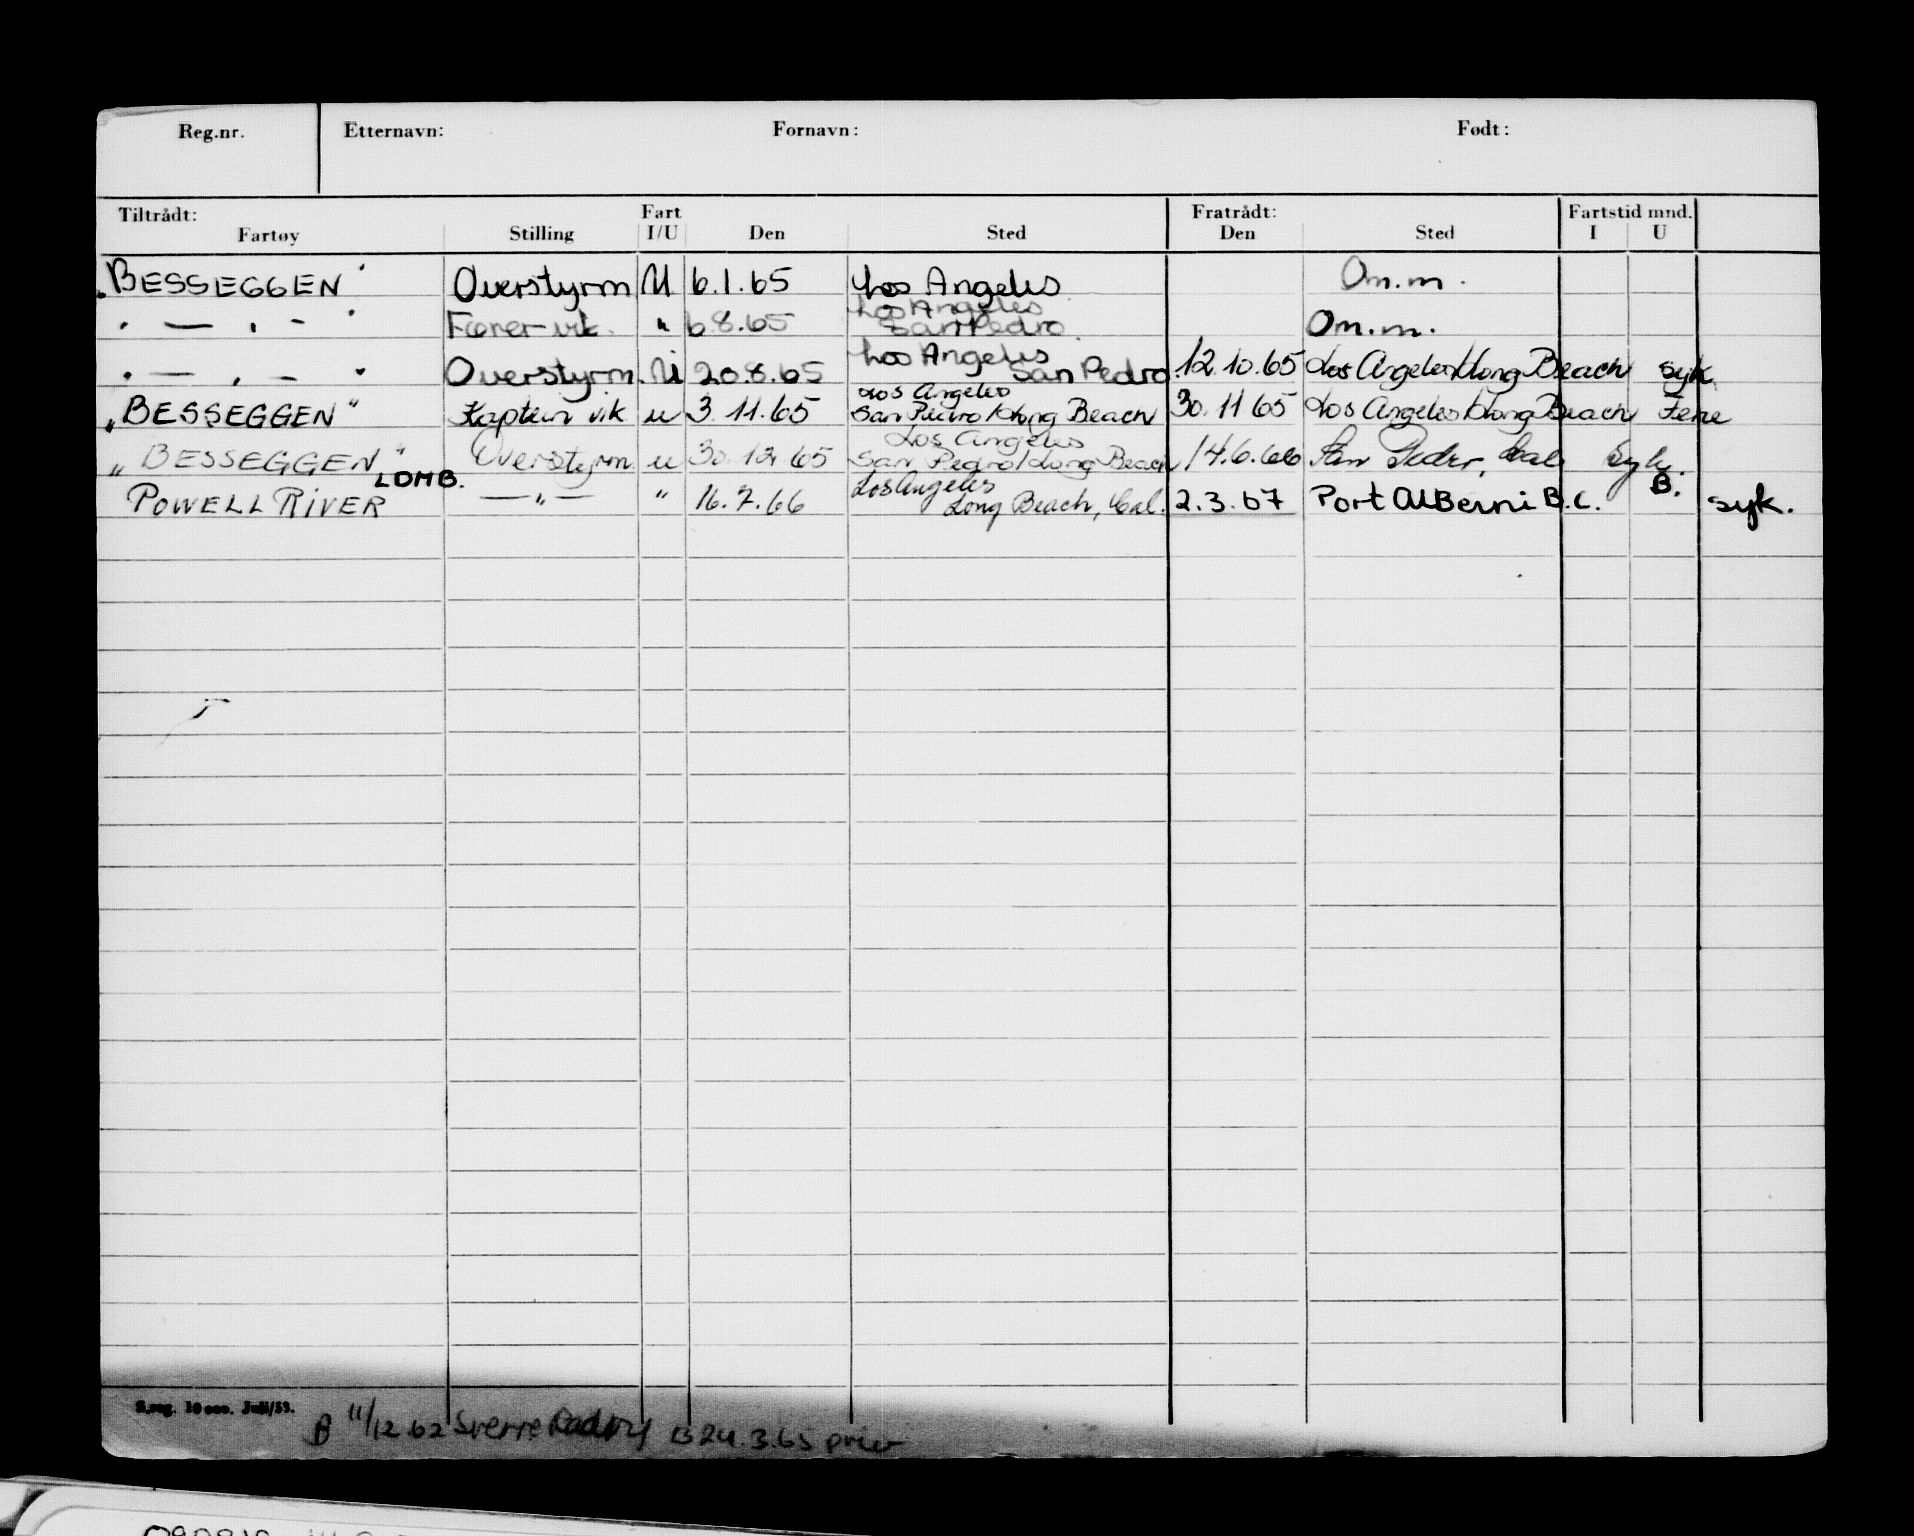 Reg.nr. Etternavn: Fornavn: Født:
Tiltrådt: Fart Fratrådt: Fartstid mnd.
Fartøy Stilling I/U Den Sted Den Sted I U
"BESSEGGEN" Overstyrm U 6.1.65 Los Angeles Om.m.
" — " — " Fører vik. " 6.8.65 Los Angeles San Pedro Om.m.
" — " — " Overstyrm. U 20.8.65 Los Angeles San Pedro 12.10.65 Los Angeles/Long Beach syk.
"BESSEGGEN" Kaptein vik u 3.11.65 Los Angeles San Pedro/Long Beach 30.11 65 Los Angeles/Long Beach Ferie
"BESSEGGEN" Overstyrm u 30.12 65 Los Angeles San Pedro/Long Beach 14.6.66 San Pedro, Cal. Syk.
LOMB. B.
POWELL RIVER — " — " 16.7.66 Los Angeles Long Beach, Cal. 2.3.67 Port Alberni B.C. syk.
S.reg. 10 000. Juli/53.
B 11/12.62 Sverre B 24.3.65